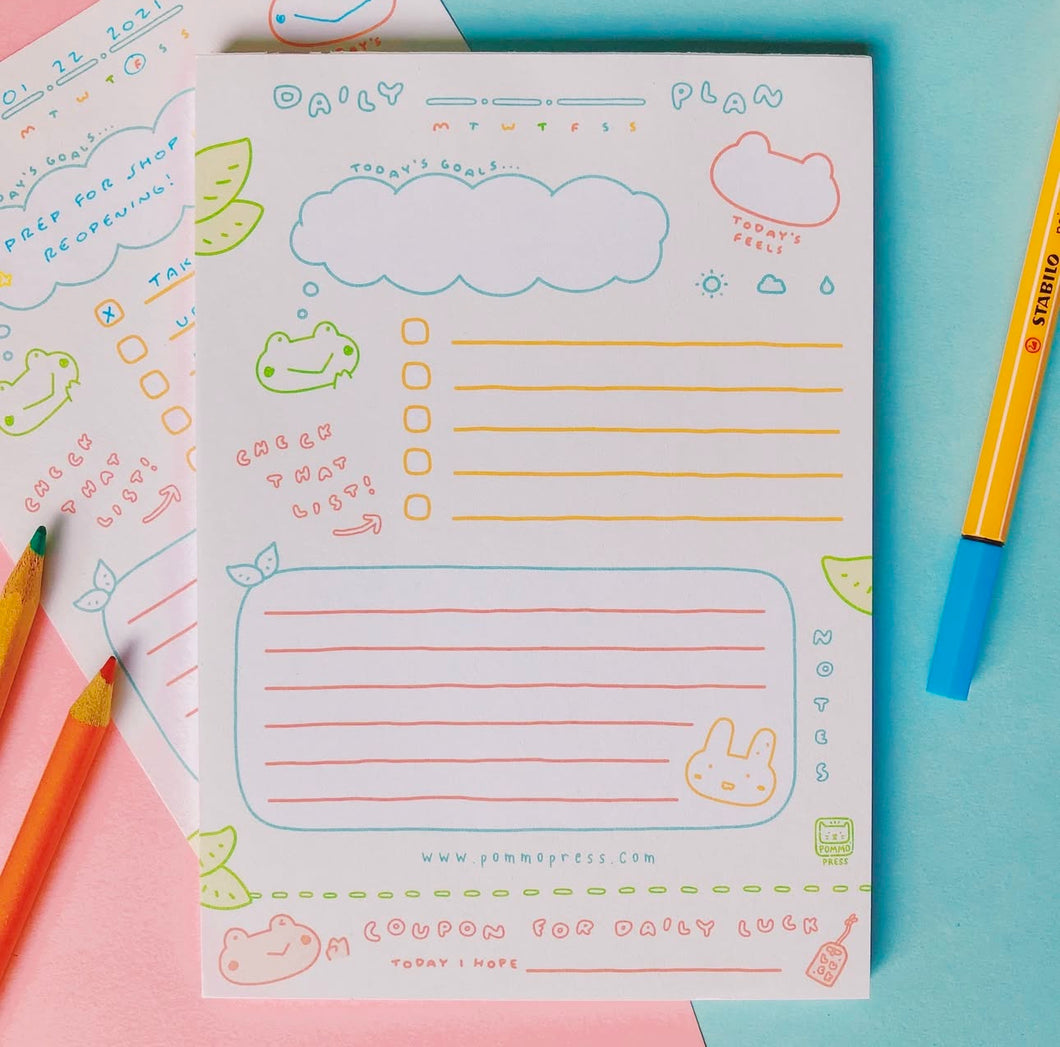 DAILY PLAN
M T W T F S S
TODAY'S GOALS...
TODAY'S
FEELS
CHECK
THAT
LIST!
NOTES
www.pommopress.com
POMMO
PRESS
COUPON FOR DAILY LUCK
TODAY I HOPE
01 22 2021
M T W T F S S
AY'S GOALS...
PREP FOR SHOP
REOPENING!
X
TAK
CHECK
THAT
LIST!
STABILO